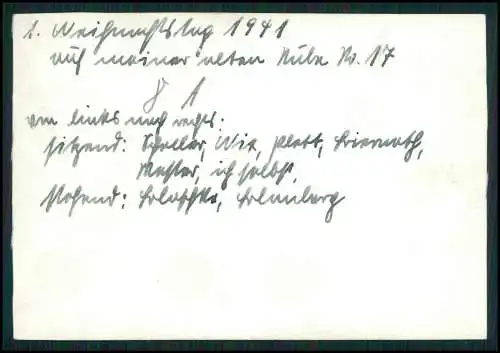 1. Weihnachtstag 1941
auf meiner alten Bude Nr. 17
1
von links nach rechts:
sitzend: Scheller, Wie, Plett, Biernoth,
Mester, ich selbst.
stehend: Erlenberg